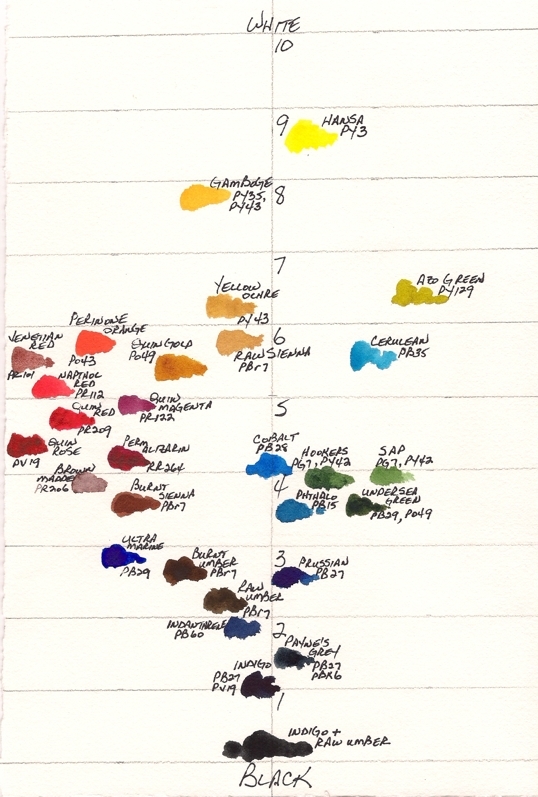 WHITE
10
9
HANSA
PY3
GAMBOGE
PY35,
PY43
8
7
AZO GREEN
PY129
YELLOW
OCHRE
PY43
PERINONE
ORANGE
PO43
VENETIAN
RED
PR101
QUIN GOLD
PO49
6
RAW SIENNA
PBr7
CERULEAN
PB35
NAPTHOL
RED
PR112
QUIN
RED
PR209
QUIN
MAGENTA
PR122
5
QUIN
ROSE
PV19
PERM
ALIZARIN
PR264
COBALT
PB28
HOOKERS
PG7, PY42
SAP
PG7, PY42
BROWN
MADDER
PR206
BURNT
SIENNA
PBr7
4
PHTHALO
PB15
UNDERSEA
GREEN
PB29, PO49
ULTRA
MARINE
PB29
BURNT
UMBER
PBr7
3
PRUSSIAN
PB27
RAW
UMBER
PBr7
INDANTHRENE
PB60
2
PAYNE'S
GREY
PB27
PBK6
INDIGO
PB27
PV19
1
INDIGO +
RAW UMBER
BLACK